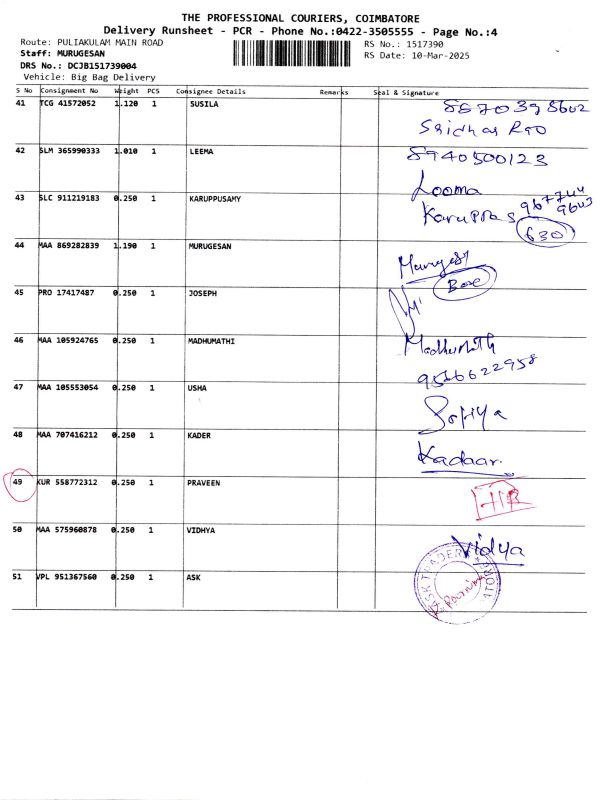 THE PROFESSIONAL COURIERS, COIMBATORE
Delivery Runsheet - PCR - Phone No.:0422-3505555 - Page No.:4
Route: PULIAKULAM MAIN ROAD
RS No.: 1517390
Staff: MURUGESAN
RS Date: 10-Mar-2025
DRS No.: DCJB151739004
Vehicle: Big Bag Delivery
S No Consignment No Weight PCS Consignee Details Remarks Seal & Signature
41 TCG 41572052 1.120 1 SUSILA 8870398602
Sridhar RTO
42 SLM 365990333 1.010 1 LEEMA 8940500123
Looma
43 SLC 911219183 0.250 1 KARUPPUSAMY
630
44 MAA 869282839 1.190 1 MURUGESAN Murugesh
Box
45 PRO 17417487 0.250 1 JOSEPH
46 MAA 105924765 0.250 1 MADHUMATHI
47 MAA 105553054 0.250 1 USHA Sofiya
48 MAA 707416212 0.250 1 KADER Kadaar.
49 KUR 558772312 0.250 1 PRAVEEN
50 MAA 575960878 0.250 1 VIDHYA Vidya
51 VPL 951367560 0.250 1 ASK ASK TRADER